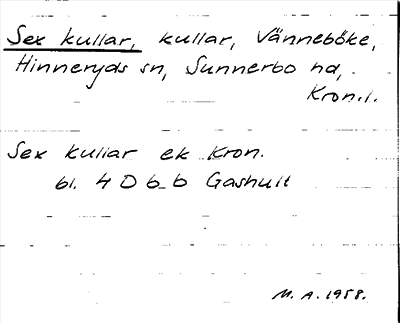 Sex kullar, kullar, Vänneböke,
Hinneryds sn, Sunnerbo hd,
Kron.l.
Sex kullar ek Kron.
bl. 4 D 6 b Gashult
M. A. 1958.